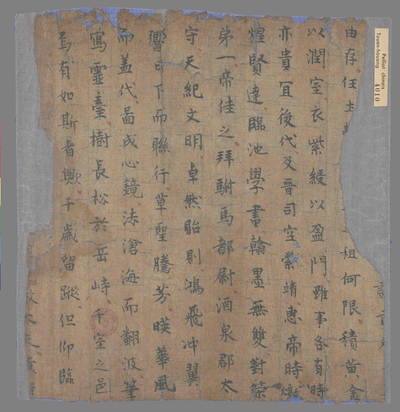 Pelliot chinois
Touen-houang
4010
由存任土 租何限積黃金
以潤室衣紫綬以盈門雖事各有時
亦貴冝後代及晉司空索靖惠帝時燉
煌賢達臨池學書翰墨無雙對策
第一帝佳之拜駙馬都尉酒泉郡太
守天紀文明卓然貽則鴻飛冲翼
響日下而聯行草聖騰芳暎華風
而蓋代啚成心鏡法滄海而翻波筆
寫靈臺樹長松於岳峙千室之邑
焉有如斯者歟千歲留蹤但仰臨